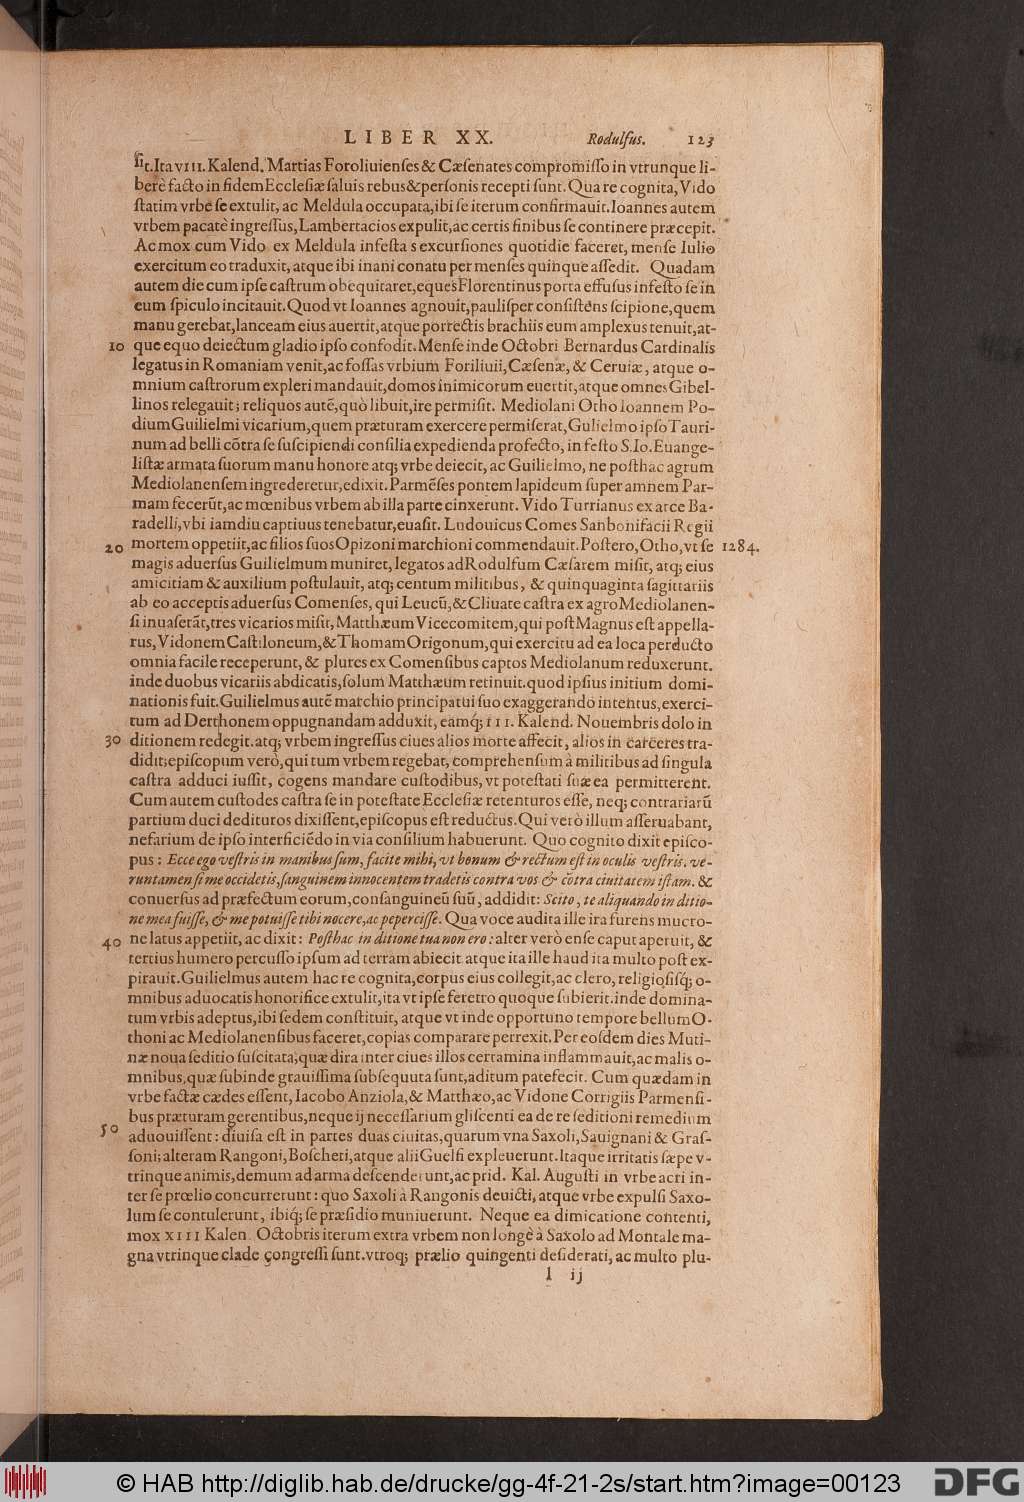 LIBER XX. Rodulfus. 123
ſit. Ita VIII. Kalend. Martias Foroliuienſes & Cæſenates compromiſſo in vtrunque li-
berè facto in fidem Eccleſiæ ſaluis rebus & perſonis recepti ſunt. Qua re cognita, Vido
ſtatim vrbe ſe extulit, ac Meldula occupata, ibi ſe iterum confirmauit. Ioannes autem
vrbem pacatè ingreſſus, Lambertacios expulit, ac certis finibus ſe continere præcepit.
Ac mox cum Vido ex Meldula infeſtas excurſiones quotidie faceret, menſe Iulio
exercitum eo traduxit, atque ibi inani conatu per menſes quinque aſſedit. Quadam
autem die cum ipſe caſtrum obequitaret, eques Florentinus porta effuſus infeſto ſe in
eum ſpiculo incitauit. Quod vt Ioannes agnouit, pauliſper conſiſtens ſcipione, quem
manu gerebat, lanceam eius auertit, atque porrectis brachiis eum amplexus tenuit, at-
10 que equo deiectum gladio ipſo confodit. Menſe inde Octobri Bernardus Cardinalis
legatus in Romaniam venit, ac foſſas vrbium Foriliuii, Cæſenæ, & Ceruiæ, atque o-
mnium caſtrorum expleri mandauit, domos inimicorum euertit, atque omnes Gibel-
linos relegauit; reliquos autē, quò libuit, ire permiſit. Mediolani Otho Ioannem Po-
dium Guilielmi vicarium, quem præturam exercere permiſerat, Gulielmo ipſo Tauri-
num ad belli cōtra ſe ſuſcipiendi conſilia expedienda profecto, in feſto S. Io. Euange-
liſtæ armata ſuorum manu honore atq; vrbe deiecit, ac Guilielmo, ne poſthac agrum
Mediolanenſem ingrederetur, edixit. Parmēſes pontem lapideum ſuper amnem Par-
mam fecerūt, ac mœnibus vrbem ab illa parte cinxerunt. Vido Turrianus ex arce Ba-
radelli, vbi iamdiu captiuus tenebatur, euaſit. Ludouicus Comes Sanbonifacii Regii
20 mortem oppetiit, ac filios ſuos Opizoni marchioni commendauit. Poſtero, Otho, vt ſe 1284.
magis aduerſus Guilielmum muniret, legatos ad Rodulfum Cæſarem miſit, atq; eius
amicitiam & auxilium poſtulauit, atq; centum militibus, & quinquaginta ſagittariis
ab eo acceptis aduerſus Comenſes, qui Leucū, & Cliuate caſtra ex agro Mediolanen-
ſi inuaſerāt, tres vicarios miſit, Matthæum Vicecomitem, qui poſt Magnus eſt appella-
rus, Vidonem Caſtiloneum, & Thomam Origonum, qui exercitu ad ea loca perducto
omnia facile receperunt, & plures ex Comenſibus captos Mediolanum reduxerunt.
inde duobus vicariis abdicatis, ſolum Matthæum retinuit. quod ipſius initium domi-
nationis fuit. Guilielmus autē marchio principatui ſuo exaggerando intentus, exerci-
tum ad Derthonem oppugnandam adduxit, eamq; III. Kalend. Nouembris dolo in
30 ditionem redegit. atq; vrbem ingreſſus ciues alios morte affecit, alios in carceres tra-
didit; epiſcopum verò, qui tum vrbem regebat, comprehenſum à militibus ad ſingula
caſtra adduci iuſſit, cogens mandare cuſtodibus, vt poteſtati ſuæ ea permitterent.
Cum autem cuſtodes caſtra ſe in poteſtate Eccleſiæ retenturos eſſe, neq; contrariarū
partium duci dedituros dixiſſent, epiſcopus eſt reductus. Qui verò illum aſſeruabant,
nefarium de ipſo interficiēdo in via conſilium habuerunt. Quo cognito dixit epiſco-
pus: Ecce ego veſtris in manibus ſum, facite mihi, vt bonum & rectum eſt in oculis veſtris. ve-
runtamen ſi me occidetis, ſanguinem innocentem tradetis contra vos & cōtra ciuitatem iſtam. &
conuerſus ad præfectum eorum, conſanguineū ſuū, addidit: Scito, te aliquando in ditio-
ne mea fuiſſe, & me potuiſſe tibi nocere, ac peperciſſe. Qua voce audita ille ira furens mucro-
40 ne latus appetiit, ac dixit: Poſthac in ditione tua non ero: alter verò enſe caput aperuit, &
tertius humero percuſſo ipſum ad terram abiecit atque ita ille haud ita multo poſt ex-
pirauit. Guilielmus autem hac re cognita, corpus eius collegit, ac clero, religioſiſq; o-
mnibus aduocatis honorifice extulit, ita vt ipſe feretro quoque ſubierit. inde domina-
tum vrbis adeptus, ibi ſedem conſtituit, atque vt inde opportuno tempore bellum O-
thoni ac Mediolanenſibus faceret, copias comparare perrexit. Per eoſdem dies Muti-
næ noua ſeditio ſuſcitata; quæ dira inter ciues illos certamina inflammauit, ac malis o-
mnibus, quæ ſubinde grauiſſima ſubſequuta ſunt, aditum patefecit. Cum quædam in
vrbe factæ cædes eſſent, Iacobo Anziola, & Matthæo, ac Vidone Corrigiis Parmenſi-
bus præturam gerentibus, neque ij neceſſarium gliſcenti ea de re ſeditioni remedium
50 aduouiſſent: diuiſa eſt in partes duas ciuitas, quarum vna Saxoli, Sauignani & Graſ-
ſoni; alteram Rangoni, Boſcheti, atque alii Guelfi expleuerunt. Itaque irritatis ſæpe v-
trinque animis, demum ad arma deſcenderunt, ac prid. Kal. Auguſti in vrbe acri in-
ter ſe prœlio concurrerunt: quo Saxoli à Rangonis deuicti, atque vrbe expulſi Saxo-
lum ſe contulerunt, ibiq; ſe præſidio muniuerunt. Neque ea dimicatione contenti,
mox XIII Kalen. Octobris iterum extra vrbem non longè à Saxolo ad Montale ma-
gna vtrinque clade congreſſi ſunt. vtroq; prælio quingenti deſiderati, ac multo plu-
l ij
© HAB http://diglib.hab.de/drucke/gg-4f-21-2s/start.htm?image=00123
DFG